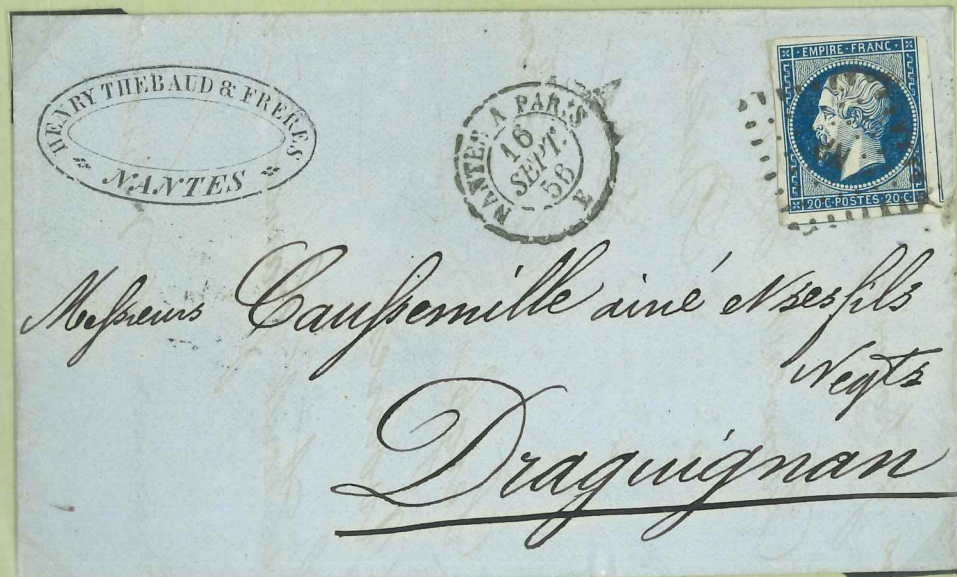 HENRY THEBAUD & FRERES
NANTES
NANTES A PARIS
16
SEPT.
56
E
EMPIRE·FRANC·
20·C·POSTES·20·C·
Messieurs Caussemille ainé et ses fils
Negts
Draguignan